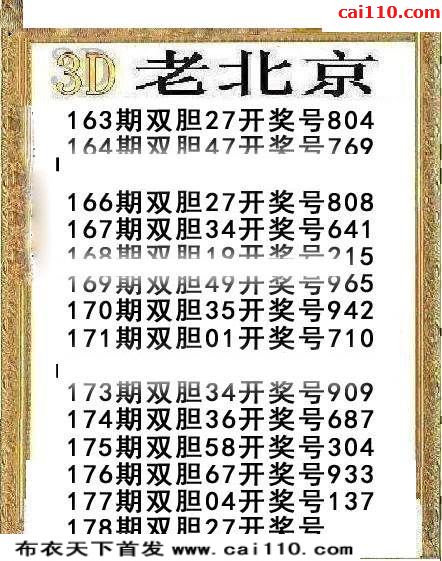 cai110.com
3D 老北京
163期双胆27开奖号804
164期双胆47开奖号769
166期双胆27开奖号808
167期双胆34开奖号641
168期双胆19开奖号215
169期双胆49开奖号965
170期双胆35开奖号942
171期双胆01开奖号710
173期双胆34开奖号909
174期双胆36开奖号687
175期双胆58开奖号304
176期双胆67开奖号933
177期双胆04开奖号137
178期双胆27开奖号
布衣天下首发 www.cai110.com